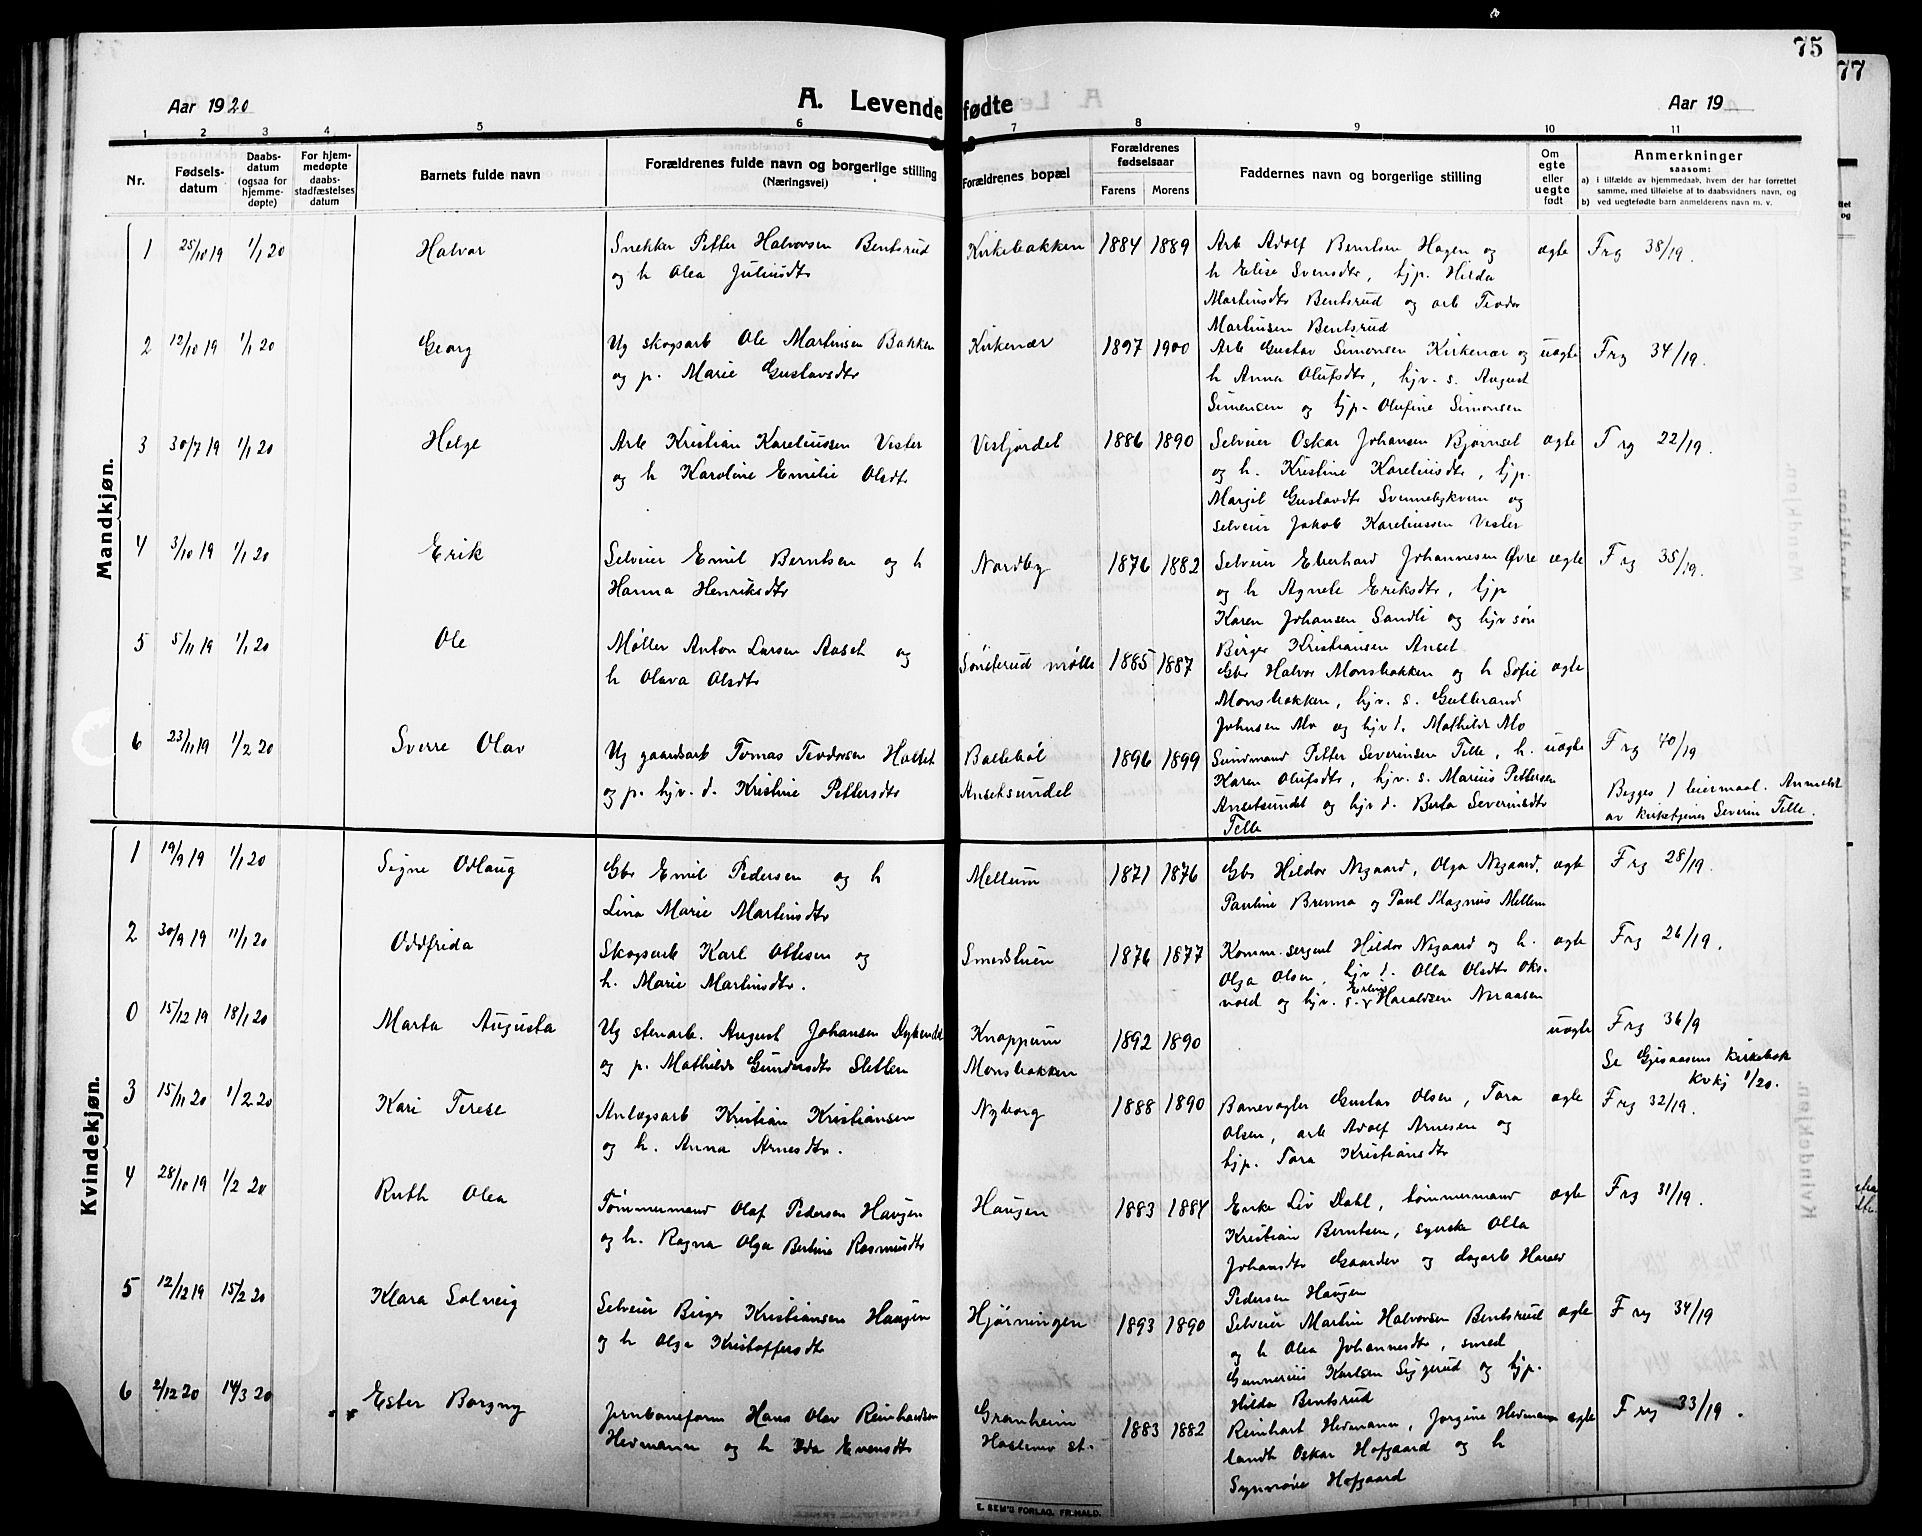 75
77
Aar 1920
A. Levende fødte
Aar 19
1 2 3 4 5 6 7 8 9 10 11
Nr.
Fødsels-
datum
Daabs-
datum
(ogsaa for
hjemme-
døpte)
For hjem-
medøpte
daabs-
stadfæstelses
datum
Barnets fulde navn
Forældrenes fulde navn og borgerlige stilling
(Næringsvei)
Forældrenes bopæl
Forældrenes
fødselsaar
Farens Morens
Faddernes navn og borgerlige stilling
Om
egte
eller
uegte
født
Anmerkninger
saasom:
a) i tilfælde av hjemmedaab, hvem der har forrettet
samme, med tilføielse af to daabsvidners navn, og
b) ved uegtefødte barn anmelderens navn m. v.
Mandkjøn.
1 25/10 19 1/1 20 Halvor
Snekker Petter Halvorsen Bentsrud
og h Olea Juliusdtr
Kirkebakken 1884 1889
Arb Adolf Berntsen Hagen og
h Elise Svensdtr, tjp. Hilda
Martinsdtr Bentsrud og arb Teodor
Martinsen Bentsrud
ægte Frg 38/19.
2 12/10 19 1/1 20 Georg
Ug skogsarb Ole Martinsen Bakken
og p. Marie Gustavsdtr
Kirkenær 1897 1900
Arb Gustav Simonsen Kirkenær og
h Anna Olufsdtr, hjv. s. August
Simensen og tjp. Olufine Simonsen
uægte Frg 34/19.
3 30/7 19 1/1 20 Helge
Arb Kristian Kareliussen Vester
og h Karoline Emilie Olsdtr
Vesfjordet 1886 1890
Selveier Oskar Johansen Bjørnset
og h. Kristine Kareliusdtr, tjp.
Margit Gustavdtr Svennebykvern og
selveier Jakob Kareliussen Vester
ægte Frg 22/19.
4 3/10 19 1/1 20 Erik
Selveier Emil Berntsen og h
Hanna Henriksdtr
Nordby 1876 1882
Selveier Eberhard Johannesen Øvre
og h Agnete Eriksdtr, tjp
Karen Johansen Sandli og hjv søn
Birger Kristiansen Anset
ægte Frg 35/19.
5 5/11 19 1/1 20 Ole
Møller Anton Larsen Aaset og
h Olava Olsdtr
Sønsterud mølle 1885 1887
Gbr Halvor Monsbakken og h Sofie
Monsbakken, hjv. s. Gulbrand
Johnsen Mo og hjv d. Mathilde Mo
ægte
6 23/11 19 1/2 20 Sverre Olav
Ug gaardsarb Tomas Teodorsen Holtet
og p. hjv. d. Kristine Pettersdtr
Baltebøl
Ansetsundet
1896 1899
Sundmand Petter Severinsen Telle, h.
Karen Olufsdtr, hjv. s. Marius Pettersen
Ansetsundet og hjv d. Berta Severinsdtr
Telle
uægte Frg 40/19
Begges 1 leiermaal. Anmeldt
av kirketjener Severin Telle.
Kvindekjøn.
1 19/9 19 1/1 20 Signe Odlaug
Gbr Emil Pedersen og h
Lina Marie Martinsdtr
Mellum 1871 1876
Gbr Hildor Nygaard, Olga Nygaard,
Pauline Brenna og Paul Magnus Mellem
ægte Frg 28/19.
2 30/9 19 11/1 20 Oddfrida
Skogsarb Karl Ottesen og
h. Marie Martinsdtr.
Smedstuen 1876 1877
Komm. sergent Hildor Nygaard og h.
Olga Olsen, hjv d. Olla Olsdtr Oks-
vold og hjv. s. Erling Haraldsen Neraasen
ægte Frg 26/19.
0 15/12 19 18/1 20 Marta Augusta
Ug stenarb. August Johansen
og p. Mathilde Gundersdtr Sletten
Knappum
Monsbakken
1892 1890
uægte Frg 36/9
Se Gjesaasens kirkebok
Kvkj 1/20.
3 15/11 20 1/2 20 Kari Terese
Anlægsarb Kristian Kristiansen
og h. Anna Arnesdtr.
Nyborg 1888 1890
Banevogter Gustav Olsen, Tora
Olsen, arb Adolf Arnesen og
tjp. Tora Kristiansdtr
ægte Frg 32/19.
4 28/10 19 1/2 20 Ruth Olea
Tømmermand Olaf Pedersen Haugen
og h. Ragna Olga Bertine Rasmusdtr
Haugen 1883 1884
Enke Liv Dahl, tømmermand
Kristian Berntsen, syerske Olla
Johansdtr Gaarder og dagarb Harald
Pedersen Haugen
ægte Frg 31/19.
5 12/12 19 15/2 20 Klara Solveig
Selveier Birger Kristiansen Haugen
og h Olga Kristoffersdtr
Hjørningen 1893 1890
Selveier Martin Halvorsen Bentsrud
og h Olea Johannesdtr, smed
Gunnerius Karlsen Siggerud og tjp.
Hilda Bentsrud
ægte Frg 34/19
6 2/12 20 14/3 20 Ester Borgny
Jernbaneform Hans Olav Reinhardsen
Hedmann og h Ida Evensdtr
Granheim
Haslemo st.
1883 1882
Reinhart Hedmann, Jorgine Hedmann
landh Oskar Hofgaard og h
Synnøve Hofgaard
ægte Frg 33/19.
E. SEM'S FORLAG, FR.HALD.